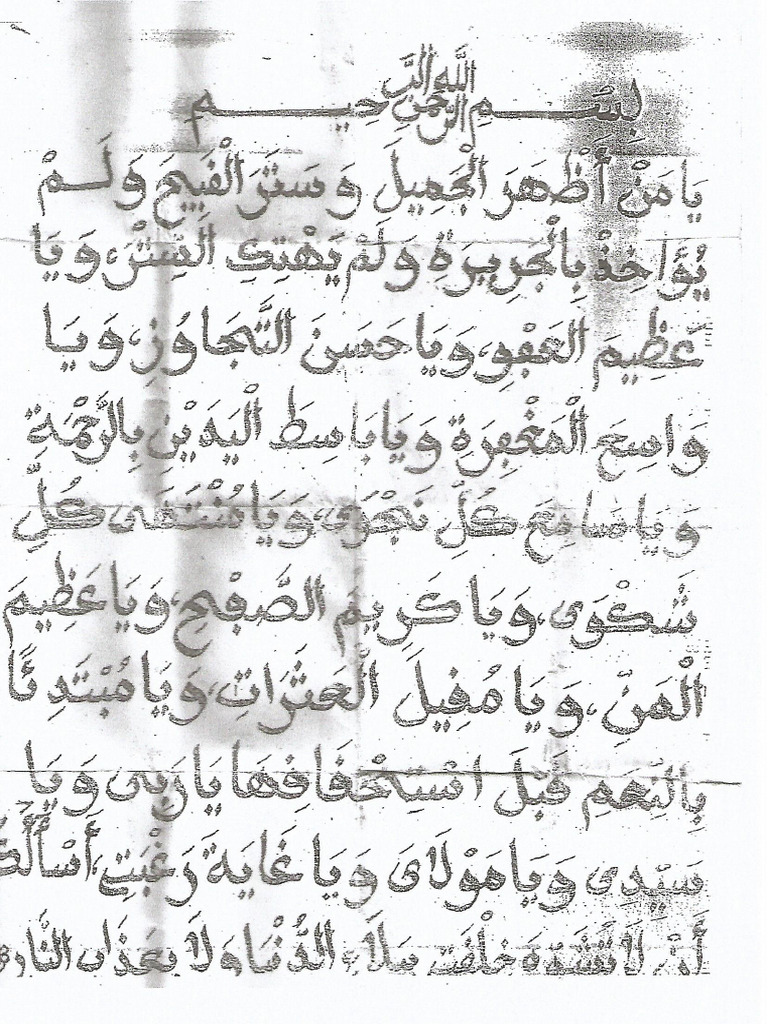 بِسْمِ اللَّهِ الرَّحْمَنِ الرَّحِيمِ
يَا مَنْ أَظْهَرَ الْجَمِيلَ وَسَتَرَ الْقَبِيحَ وَلَمْ
يُؤَاخِذْ بِالْجَرِيرَةِ وَلَمْ يَهْتِكِ السِّتْرَ، وَيَا
عَظِيمَ الْعَفْوِ، وَيَا حَسَنَ التَّجَاوُزِ، وَيَا
وَاسِعَ الْمَغْفِرَةِ وَيَا بَاسِطَ الْيَدَيْنِ بِالرَّحْمَةِ
وَيَا سَامِعَ كُلِّ نَجْوَى، وَيَا مُنْتَهَى كُلِّ
شَكْوَى، وَيَا كَرِيمَ الصَّفْحِ، وَيَا عَظِيمَ
الْمَنِّ، وَيَا مُقِيلَ الْعَثَرَاتِ، وَيَا مُبْتَدِئًا
بِالنِّعَمِ قَبْلَ اسْتِحْقَاقِهَا يَا رَبِّي وَيَا
سَيِّدِي وَيَا مَوْلَايَ وَيَا غَايَةَ رَغْبَتِي، أَسْأَلُكَ
أَنْ لَا تُشَوِّهَ خِلْقَتِي بِبَلَاءِ الدُّنْيَا وَلَا بِعَذَابِ النَّارِ